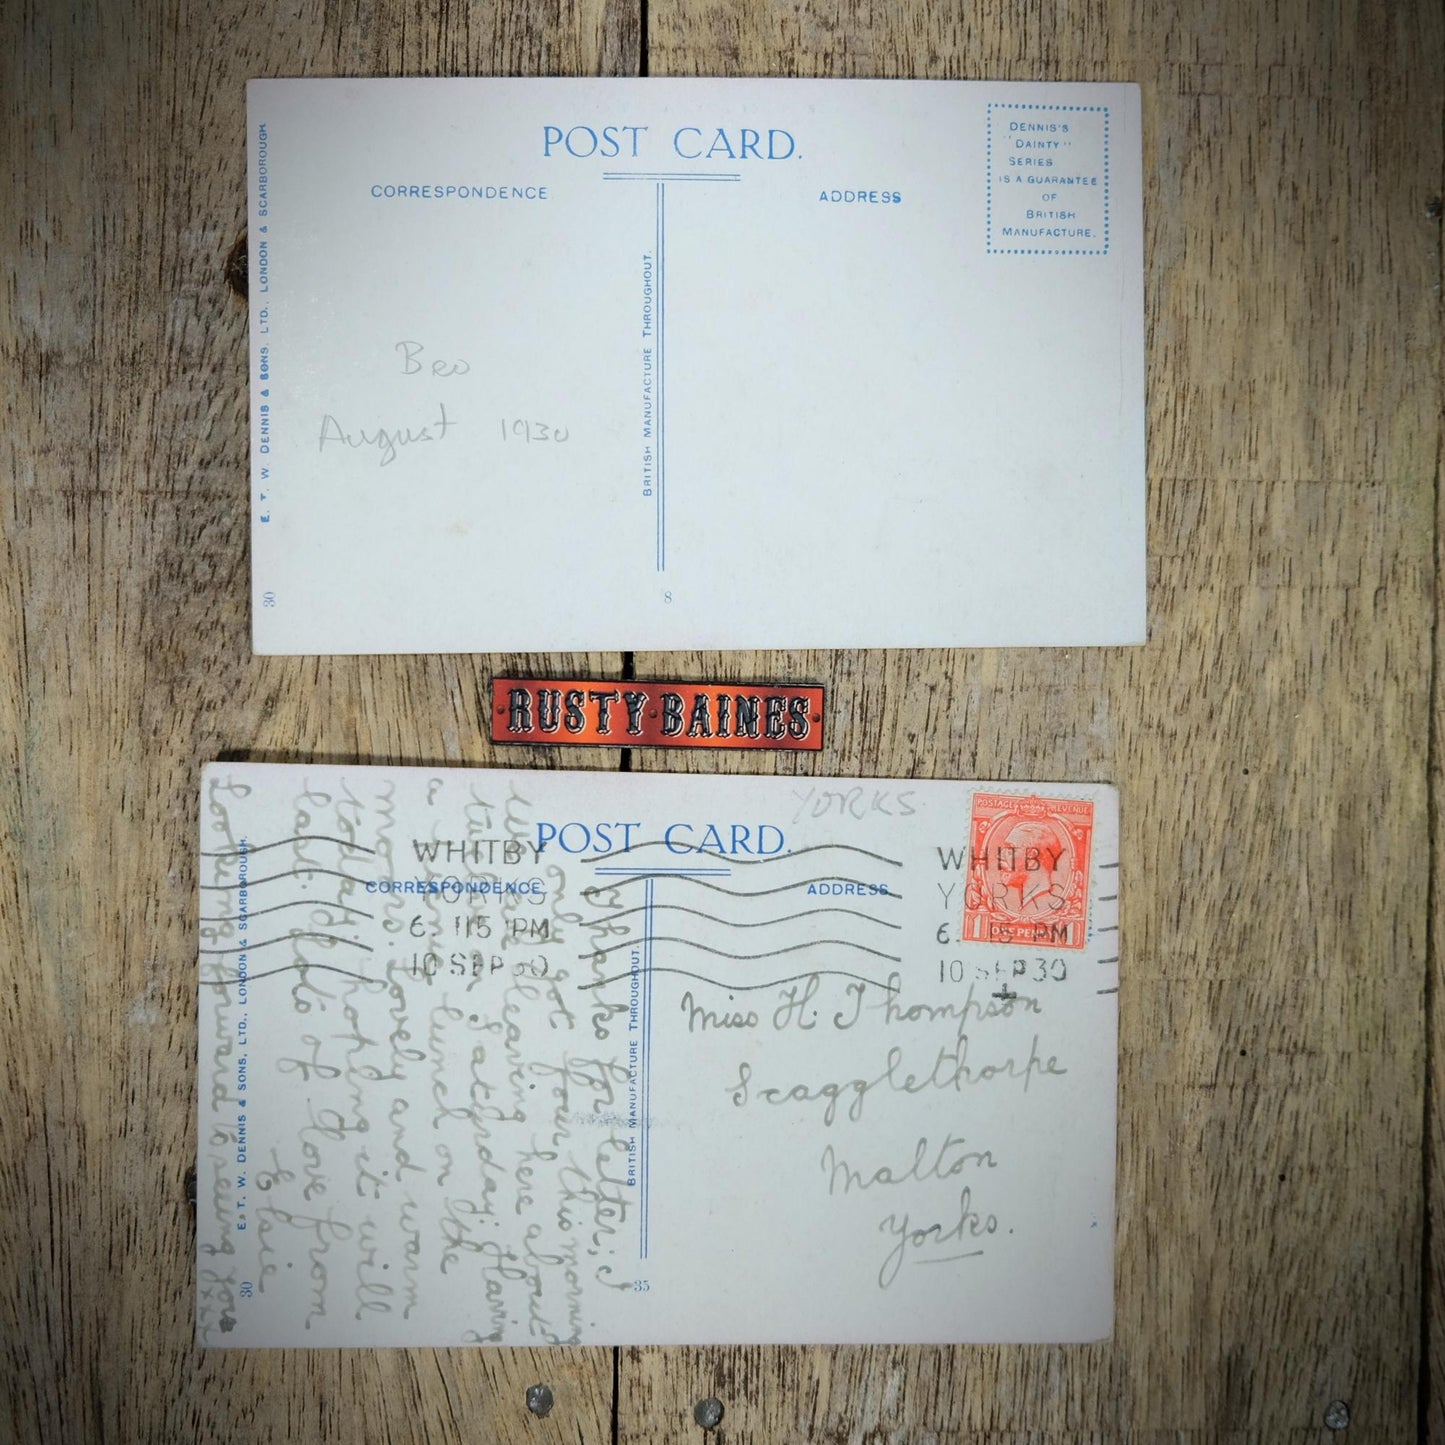 POST CARD.
CORRESPONDENCE
ADDRESS
DENNIS'S
"DAINTY"
SERIES
IS A GUARANTEE
OF
BRITISH
MANUFACTURE.
E. T. W. DENNIS & SONS, LTD., LONDON & SCARBOROUGH
BRITISH MANUFACTURE THROUGHOUT.
August 1930
30
8
RUSTY BAINES
YORKS.
POST CARD.
CORRESPONDENCE
ADDRESS
POSTAGE REVENUE
1 ONE PENNY 1
WHITBY
YORKS
6. 15 PM
10 SEP 30
WHITBY
YORKS
6. 15 PM
10 SEP 30
E. T. W. DENNIS & SONS, LTD., LONDON & SCARBOROUGH.
BRITISH MANUFACTURE THROUGHOUT.
30
35
Thanks for letter; I
only got your this morning
we are leaving here about
two on Saturday. Having
a lunch on the
moors. Lovely and warm
today, hoping it will
last. Lots of love from
Elsie
Looking forward to seeing you xxxx
Miss H. Thompson
Scagglethorpe
Malton
Yorks.